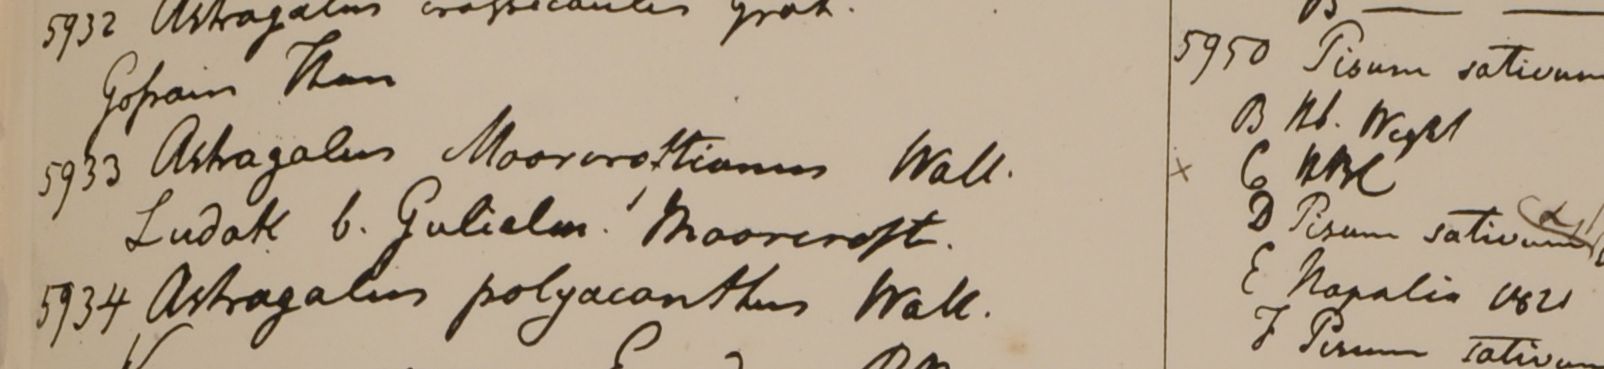 5932 Astragalus crassicaulis Grah.
Gosain Than
5933 Astragalus Moorcroftianus Wall.
Ludak b. Gulielm. Moorcroft.
5934 Astragalus polyacanthus Wall.
B
5950 Pisum sativum
B Hb. Wight
× C HBC
D Pisum sativum
E Napalia 1821
F Pisum sativum